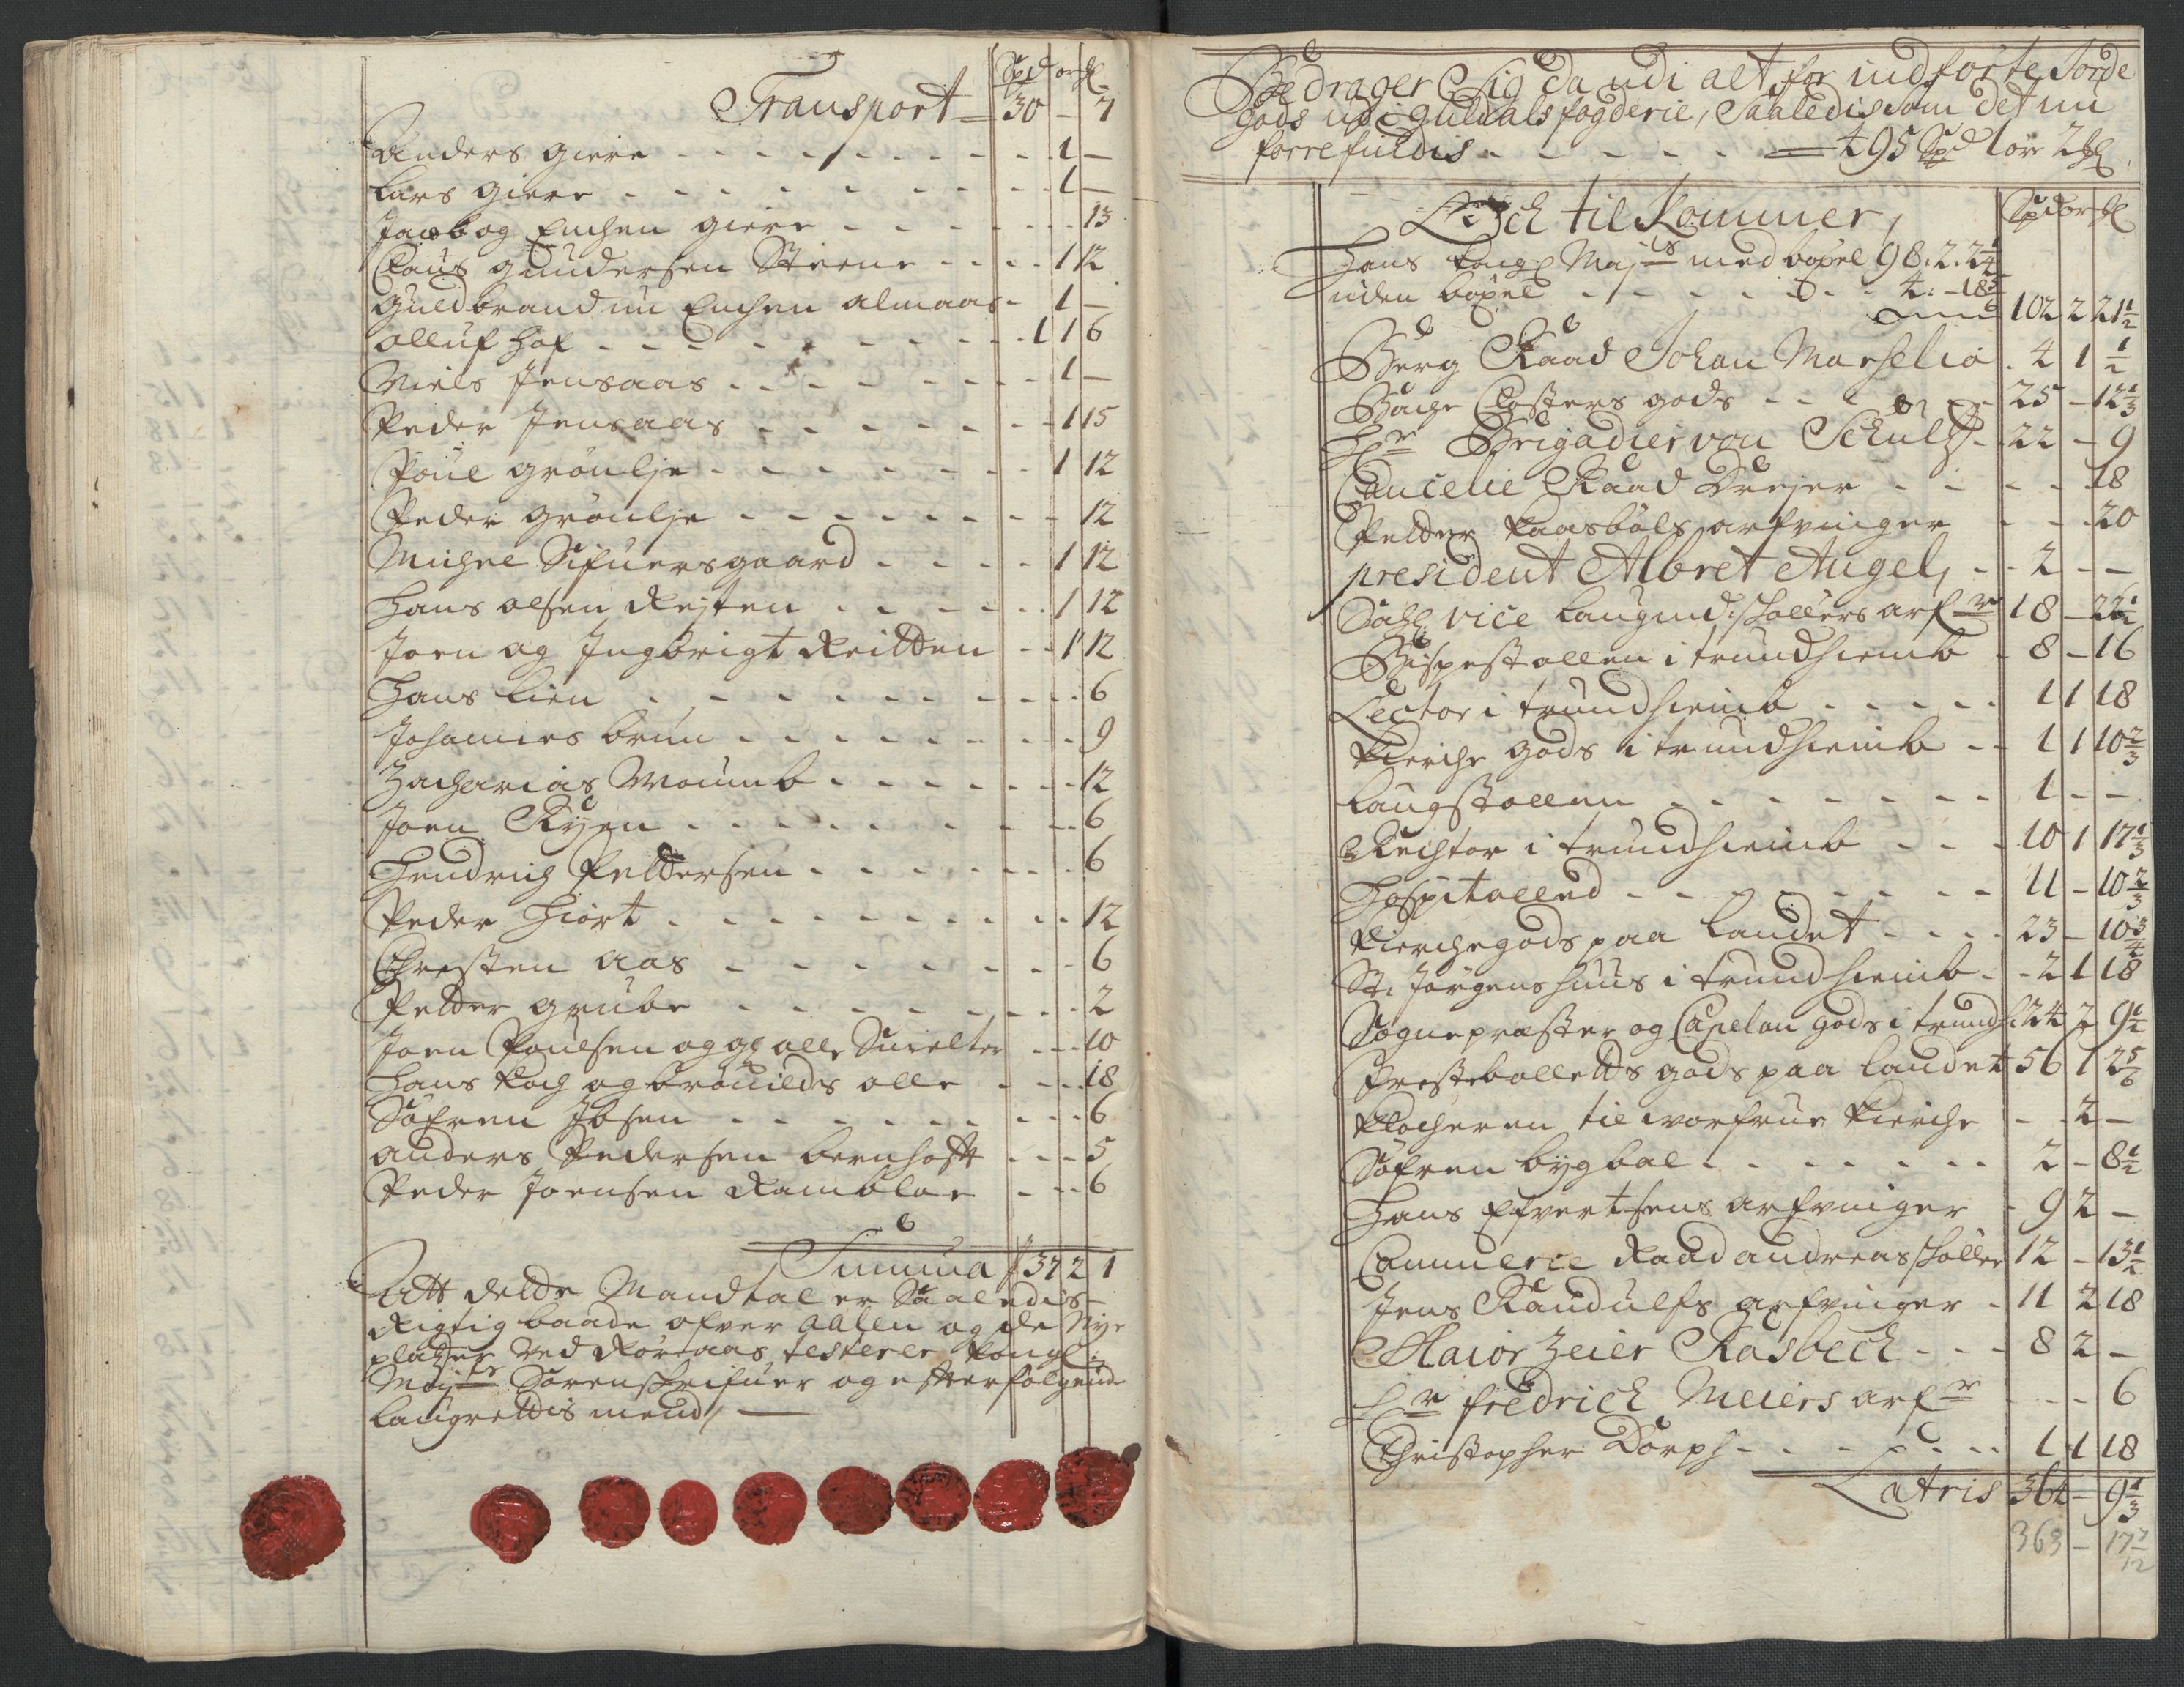 Spd ør ₰l
Transport 30 - 7
Anders giere - - 1 -
Lars giere - - 1 -
Jacob og Enchen giere - - 13
Claus gundersen Steene - - 1 12
guldbrand nu Enchen almaas - 1 -
olluf hof - - 1 1 6
Niels Jensaas - - 1 -
Peder Jensaas - - 1 15
Poul grönlje - - 1 12
Peder grönlje - - 12
Michel Sifuersgaard - - 1 12
Hans olsen Rejten - - 1 12
Joen og Ingbrigt Reitten - - 1 12
Hans lien - - 6
Johannes brun - - 9
Zacharias Woumb - - 12
Joen Ryen - - 6
Hendrich Pettersen - - 6
Peder Hiort - - 12
Christen Aas - - 6
Petter grube - - 2
Joen Poulsen og gl olle Smelter - - 10
Hans Koch og brouilds olle - - 18
Söfren Ibsen - - 6
anders Pedersen bernhoft - - 5
Peder Joensen Ramblae - - 6
Summa 37 2 1
Att dette Mandtal er Saaledis
Rigtig baade ofver Aalen og de Nye
pladtzer ved Röraas testerer Kongl:
Mayts Sorenskrifuer og efterfölgende
laugrettis mend
Bedrager Sig da udi alt for indförte Jorde
gods udi guldals fogderie, Saaledis som det nu
forrefindis - - 495 Spd 1 ör 2 ₰l
Och til Kommer, Spd ør ₰l
Hans Kongl Mayts med böxel 98. 2. 2 1/4
uden böxel - - 4. - 18 3/6
102 2 21 1/2
Berg Raad Johan Marselio 4 1 1/2
Bache Closters gods - - 25 - 12 1/3
Hr Brigadier von Schults - 22 - 9
Cancelie Raad Dreyer - - 18
Petter Kaasböls arfvinger - - 20
president Albret Angel, - 2 - -
Sahl vice laugmd: Sollers arfr 18 - 22 1/2
Bispestollen i trundhiemb - 8 - 16
Lector i trundhiemb - - 1 1 18
Kierche gods i trundhiemb - - 1 1 10 2/3
Laugstollen - - 1 - -
Rechtor i trundhiemb - - 10 1 17 1/3
Hospitalled - - 11 - 10 2/3
Kierchegods paa Landet - - 23 - 10 3/4
St. Jörgens huus i trundhiemb - 2 1 18
Sognepræster og Capelan gods i trundh 24 2 9 1/2
Presteboletts gods paa landet 56 1 2 5/6
Klocheren til worfrue Kierche - 2 -
Söfren bygbal - - 2 - 8 1/2
Hans Efvertsens arfvinger - 9 2 -
Commerce Raad andreas Söller 12 - 13 1/2
Jens Randulfs arfvinger - 11 2 18
Maior Zeier Rosbech - - 8 2 -
Hr fredrich Meiers arfr - - 6
Christopher Dorph - - 1 1 18
Latris 364 - 9 1/3
363 - 17 7/12